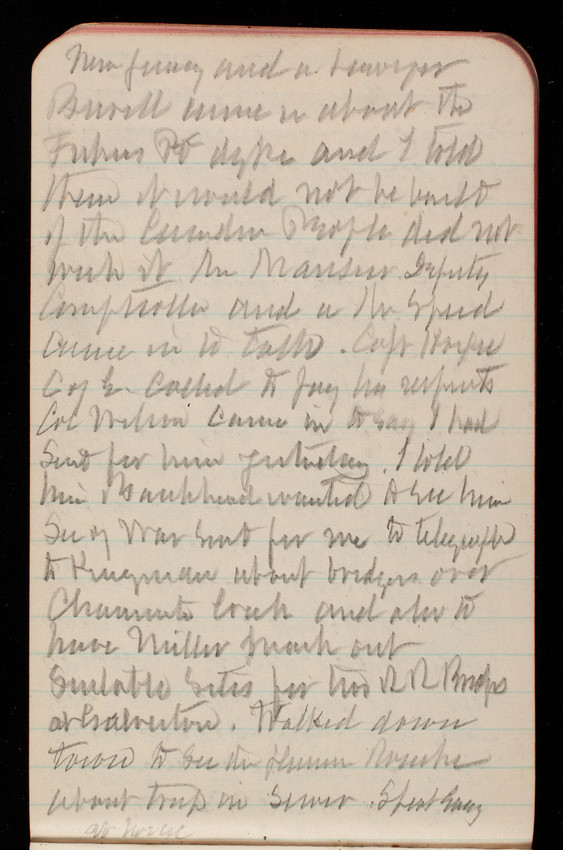 New Jersey and a Lawyer
Burrell came in about the
Fishers Pt dyke and I told
them it would not be built
if the Camden People did not
wish it. Mr Mansur Deputy
Comptroller and a Mr Speed
came in to talk. Capt
C of E. called to pay his respects
Col Wilson came in to say I had
sent for him yesterday. I told
him Bankhead wanted to see him
Sec of War sent for me to telegraph
to Kingman about bridges over
Creek and also to
have Miller mark out
Suitable Sites for two R R Bridges
at Galveston. Walked down
town to see the plumber
about trap in Sewer. Spent Evng
at home